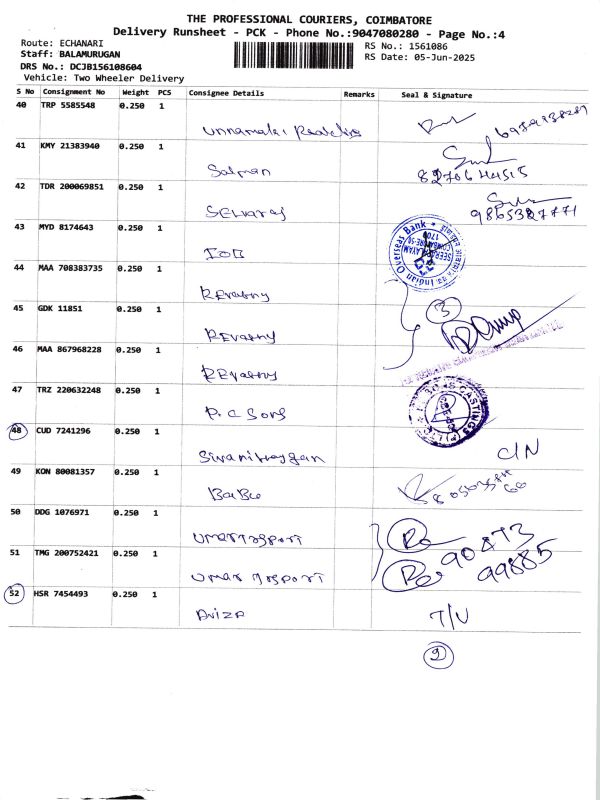 THE PROFESSIONAL COURIERS, COIMBATORE
Delivery Runsheet - PCK - Phone No.:9047080280 - Page No.:4
Route: ECHANARI
RS No.: 1561086
Staff: BALAMURUGAN
RS Date: 05-Jun-2025
DRS No.: DCJB156108604
Vehicle: Two Wheeler Delivery
S No Consignment No Weight PCS Consignee Details Remarks Seal & Signature
40 TRP 5585548 0.250 1
unnamalai
41 KMY 21383940 0.250 1
Salman
82706 44515
42 TDR 200069851 0.250 1
SELVaraj
9865327771
43 MYD 8174643 0.250 1
IOB
Indian Overseas Bank
44 MAA 708383735 0.250 1
REvathy
45 GDK 11851 0.250 1
REvathy
3
46 MAA 867968228 0.250 1
REvathy
47 TRZ 220632248 0.250 1
P.C Sons
48 CUD 7241296 0.250 1
C/N
49 KON 80081357 0.250 1
BaBu
50 DDG 1076971 0.250 1
90473
51 TMG 200752421 0.250 1
99885
52 HSR 7454493 0.250 1
T/V
9